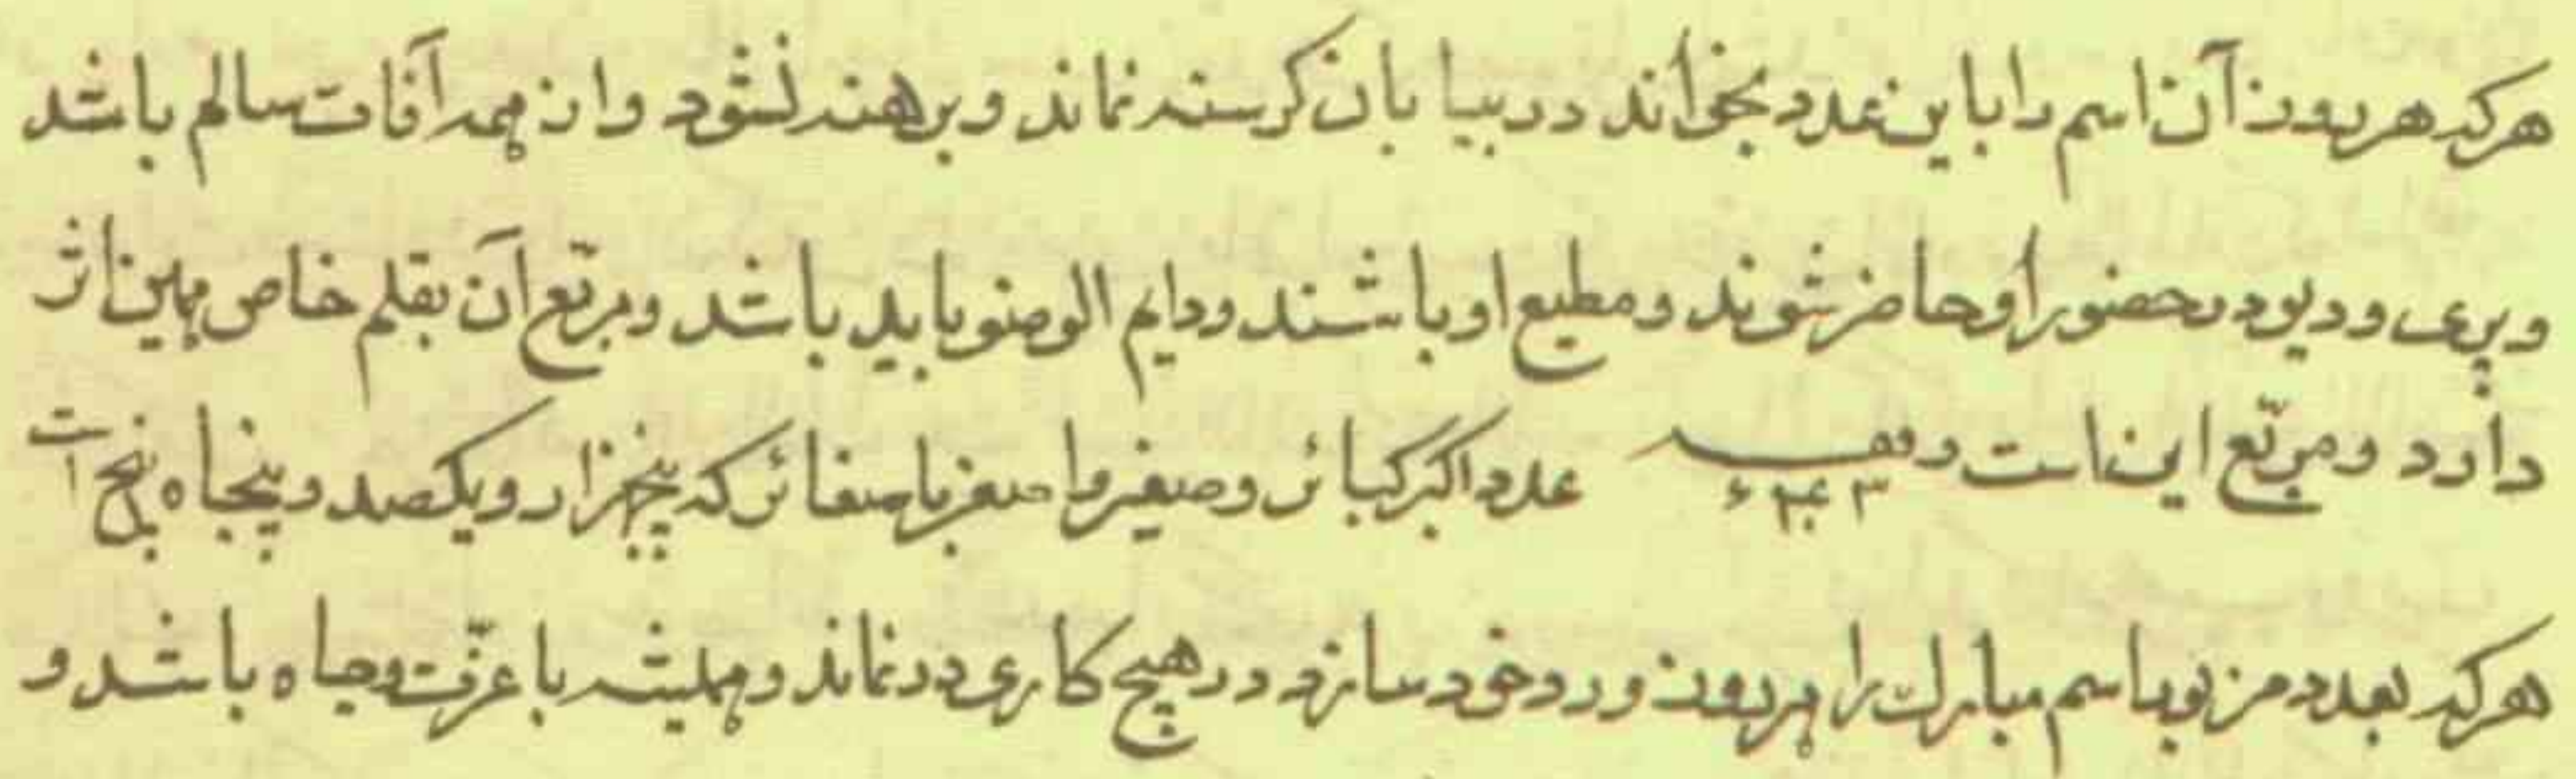 هرکه هر روز آن اسم را باین عدد بخواند در بیابان کرسنه نماند و برهنه نشود و از همه آفات سالم باشد
و پری و دیو در حضور او حاضر شوند و مطیع او باشند و دایم الوضو باید باشد و مربّع آن بقلم خاص همین اثر
دارد و مربّع این است عدد اکبر کبائر و صغیر وا صغر با صغائر که پنجهزار و یکصد و پنجاه پنج است
هرکه بعدد مزبو باسم مبارک را هر روز ورد خود سازد در هیچ کاری در نماند و همیشه با عزّت و جاه باشد و